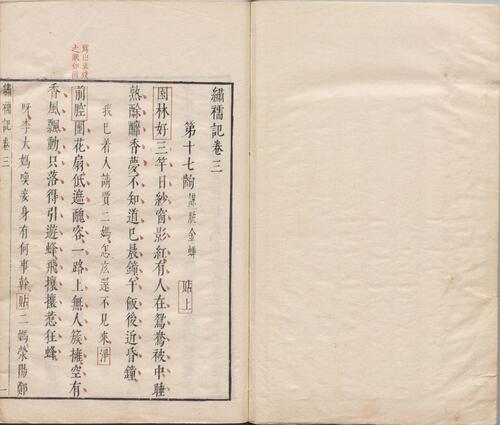 繡襦記卷三
第十七齣 謀脫金蟬
貼上
園林好三竿日紗窗影紅有人在鴛鴦被中睡
熟酴醾香夢不知道已晨鐘午飯後近昏鐘
我已着人請賈二媽怎庅還不見來淨
前腔團花扇低遮醜容一路上無人簇擁空有
香風飄動只落得引遊蜂飛攘攘惹狂蜂
呀李大媽喚妾身有何事幹貼二媽滎陽鄭
繡襦記卷三
一